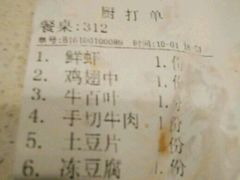 厨打单
餐桌:312
单号:B161001000086 时间:10-01
1. 鲜虾 1.份
2. 鸡翅中 1.份
3. 牛百叶 1.份
4. 手切牛肉 1.份
5. 土豆片 1.份
6. 冻豆腐 1.份